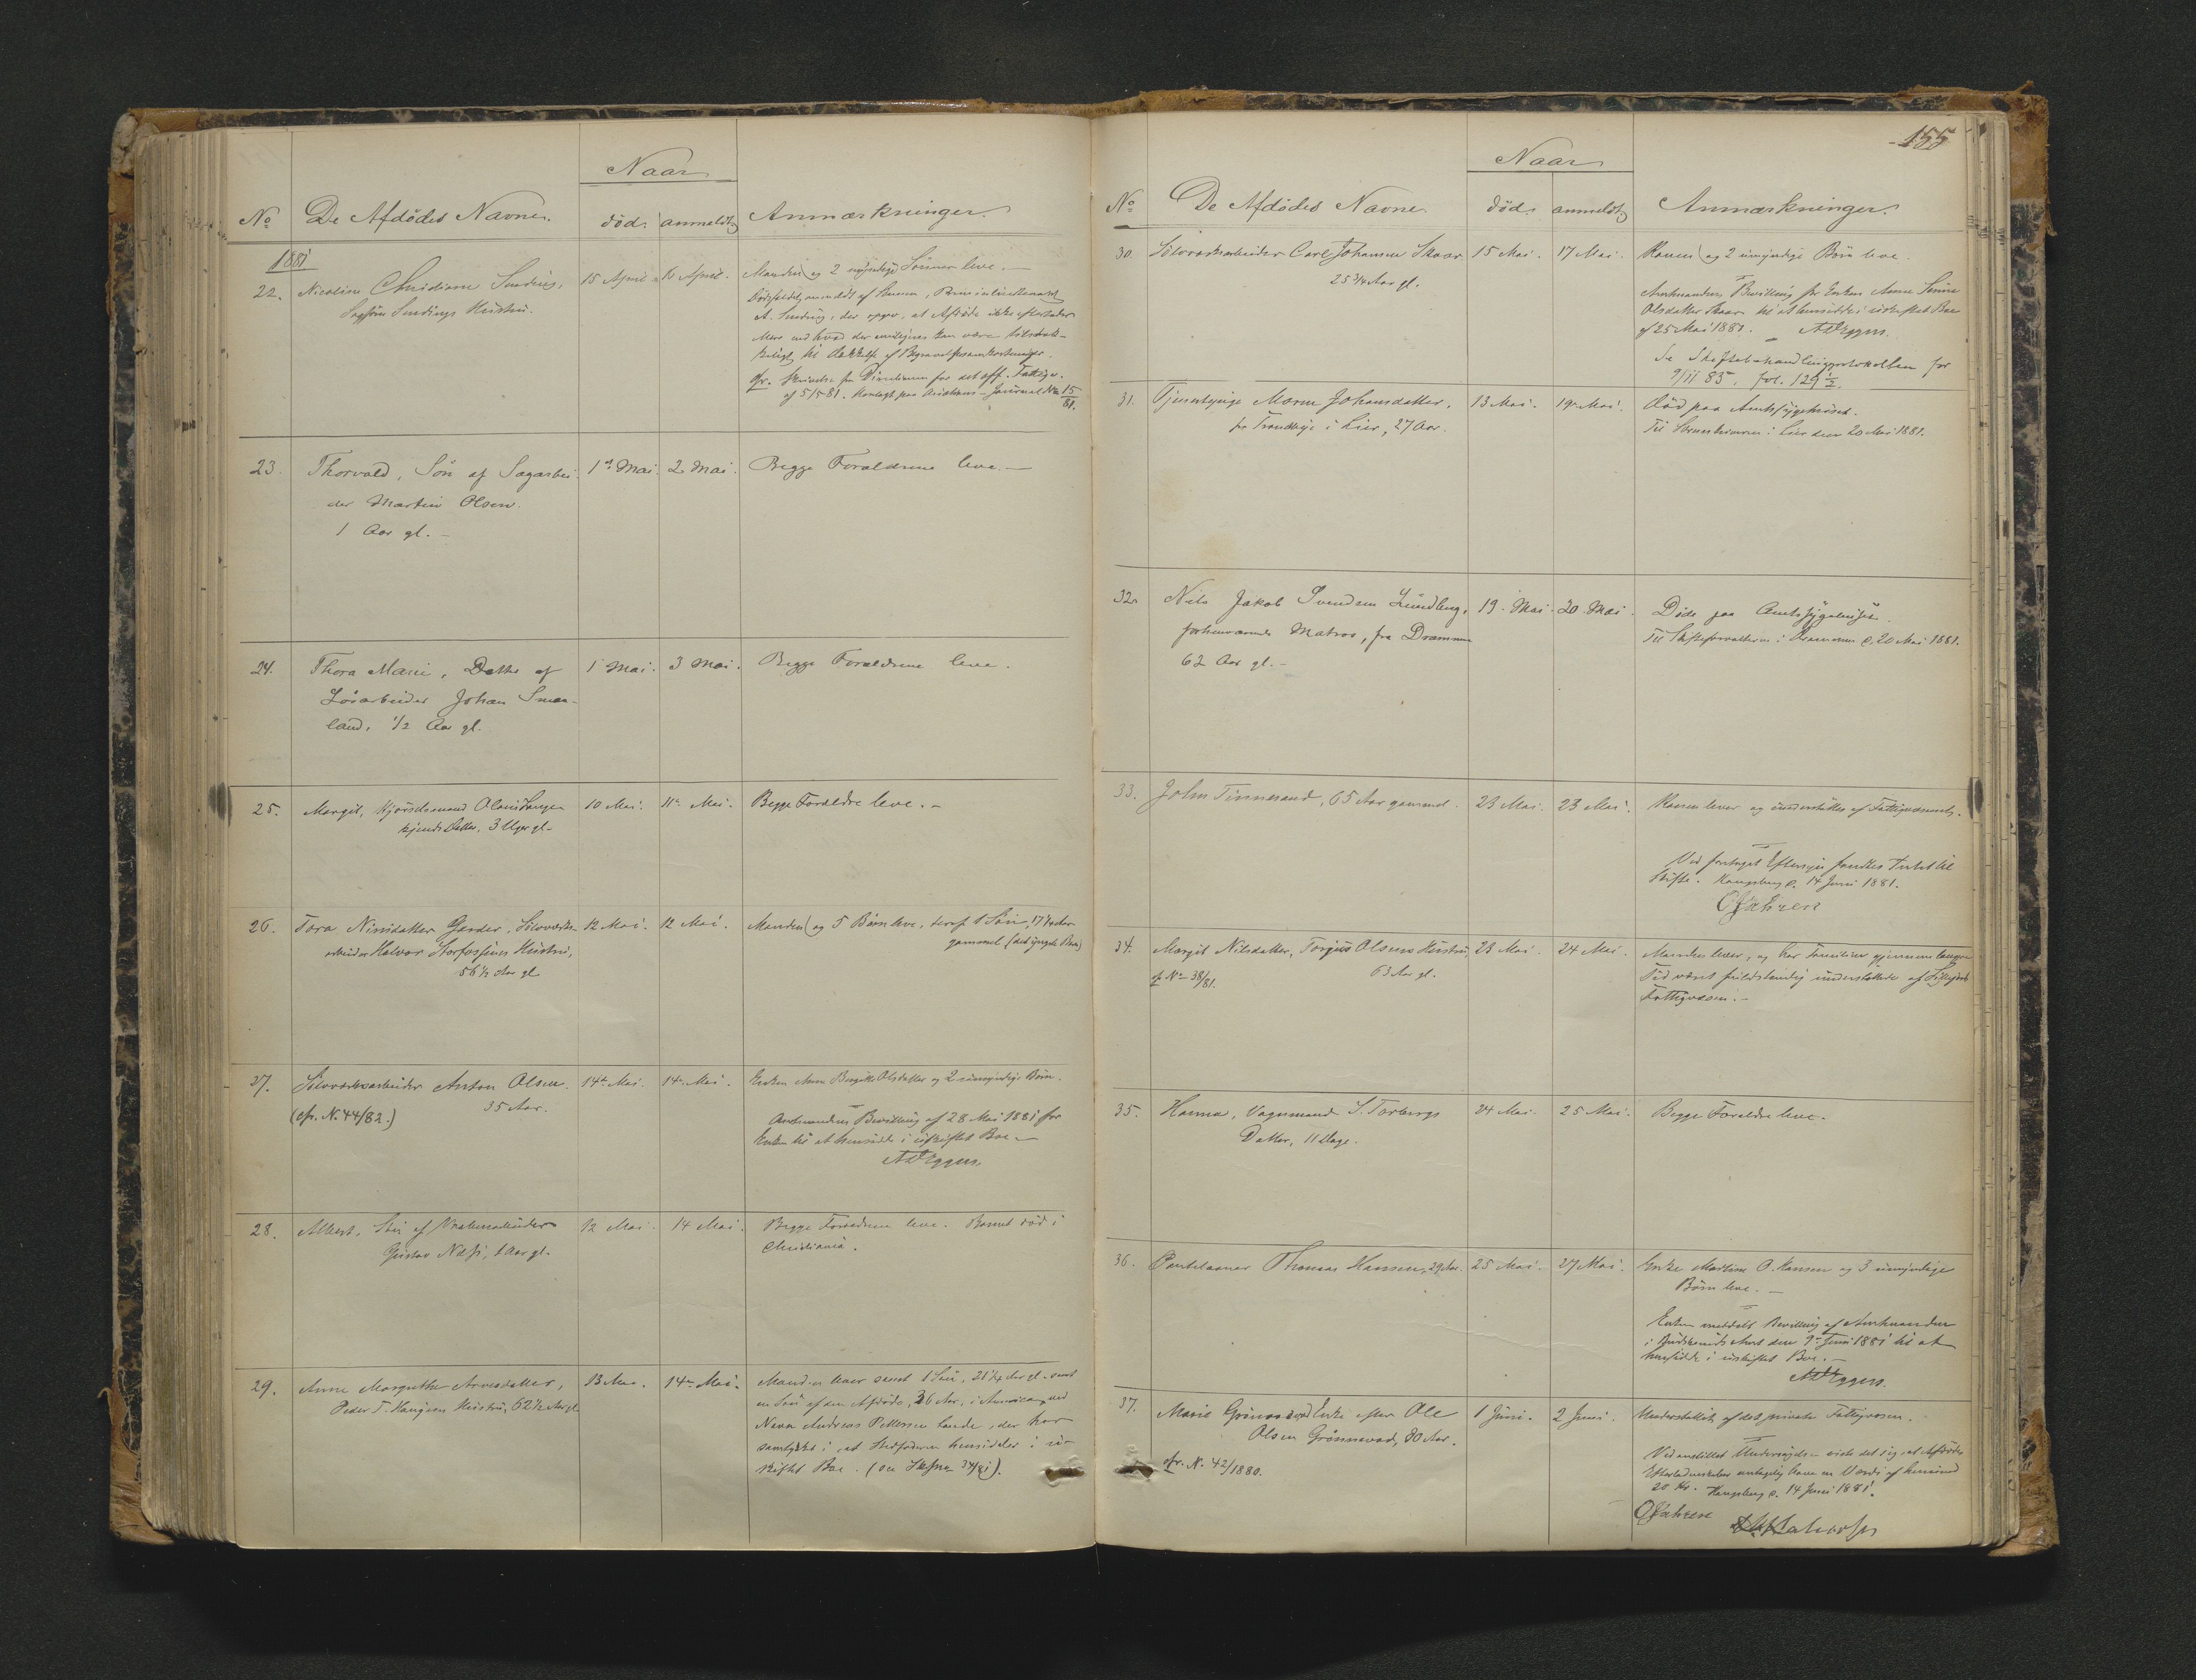 Naar
No De Afdødes Navne. død. anmeldt. Anmærkninger.
1881
22. Nicoline Christiane Sinding, 15 April 16 April. Manden og 2 myndige Sønner leve. —
Sagfører Sindings Hustru.
Dødsfaldet anmeldt af Sønnen,
A. Sinding, der opgav, at Afdøde ikke efterlader
Mere end hvad der muligens kan være tilstræk-
keligt til Dækkelse af Begravelsesomkostninger.
cfr. Skrivelse fra Direktionen for det off. Fattigv.
af 5/5 81. Henlagt paa Auktions-Journal No 15/81.
23. Thorvald, Søn af Sagarbei- 1ste Mai. 2 Mai. Begge Forældrene leve. —
der Martin Olsen.
1 Aar gl. —
24. Thora Marie, Datter af 1 Mai. 3 Mai. Begge Forældrene leve.
Løsarbeider Johan Smaa-
land, 1/2 Aar gl.
25. Margit, Olavis Lange- 10 Mai. 11te Mai. Begge Forældre leve. —
Datter, 3 Uger gl.
26. Tora Nirisdatter Garder, Sølvværks- 12 Mai. 12 Mai. Manden og 5 Børn leve, deraf 1 Søn, 17 Aar
arbeider Halvor Storfossens Hustru, gammel (det yngste Barn)
56 1/2 Aar gl.
27. Sølvværksarbeider Anton Olsen. 14de Mai. 14de Mai. Enken Anne Birgitte Olsdatter og 2 umyndige Børn.
(cfr. No. 44/82.) 35 Aar.
Amtmandens Bevilling af 28 Mai 1881 for
Enken til at hensidde i uskiftet Bo. —
A. Eggers.
28. Albert, Søn af 12 Mai. 14 Mai. Begge Forældrene leve. Barnet død i
Gustav 1 Aar gl. Christiania.
29. Anne Margrethe Arnesdatter, 13 Mai. 14de Mai. Manden lever samt 1 Søn, 21 1/4 Aar gl. samt
Peder T. Haugens Hustru, 62 1/2 Aar gl. en Søn af den Afdøde, 36 Aar, i America, ved
Navn Andreas Pettersen Lande, der har
samtykket i, at Stedfaderen hensidder i u-
skiftet Boe. (se 34/81).
155
Naar
No De Afdødes Navne død. anmeldt. Anmærkninger.
30. Sølvværksarbeider Carl Johansen Skaar 15 Mai. 17 Mai. Konen og 2 umyndige Børn leve.
25 3/4 Aar gl.
Amtmandens Bevilling for Enken Anne
Olsdatter Skaar til at hensidde i uskiftet Boe
af 25 Mai 1881. A. Eggers.
Se Skiftebehandlingsprotokollen for
9/11 85, fol. 129 1/2.
31. Tjenestepige Maren Johansdatter, 13 Mai. 19de Mai. Død paa Amtssygehuset.
fra i Lier, 27 Aar. Til i Lier den 20 Mai 1881.
32. Nils Jakob Svendsen Lundberg, 19. Mai. 20 Mai. Døde paa Amtssygehuset.
forhenværende Matros, fra Drammen Til Skifteforvalteren i Drammen d. 20 Mai 1881.
62 Aar gl. —
33. John Tinnesand, 65 Aar gammel. 23 Mai. 23 Mai. Konen lever og understøttes af Fattigvæsenet.
Ved foretaget Eftersyn fandtes Intet til
Skifte. Kongsberg d. 14 Juni 1881.
34. Margit Nilsdatter, Torjus Olsens Hustru, 23 Mai. 24 Mai. Manden lever, og har Familien gjennem længere
cf. No 38/81. 63 Aar gl. Tid været fuldstændig understøttede af
Fattigvæsen. —
35. Hanna, Vognmand S. Torbergs 24 Mai. 25 Mai. Begge Forældre leve.
Datter, 11 Dage.
36. Pantelaaner Thomas Hansen, 29 Aar. 25 Mai. 27 Mai. Enke O. Hansen og 3 umyndige
Børn leve. —
Enken meddelt Bevilling af Amtmanden
i Buskeruds Amt den 9de Juni 1881 til at
hensidde i uskiftet Boe. —
A. Eggers.
37. Marie Enke efter Ole 1 Juni. 2 Juni. Understøttet af det private Fattigvæsen.
Olsen Grønnevad, 80 Aar.
cfr. N. 42/1880.
Ved anstillet Undersøgelse viste det sig, at Afdødes
Efterladenskaber antagelig have en Værdi af
20 Kr. Kongsberg d. 14 Juni 1881.